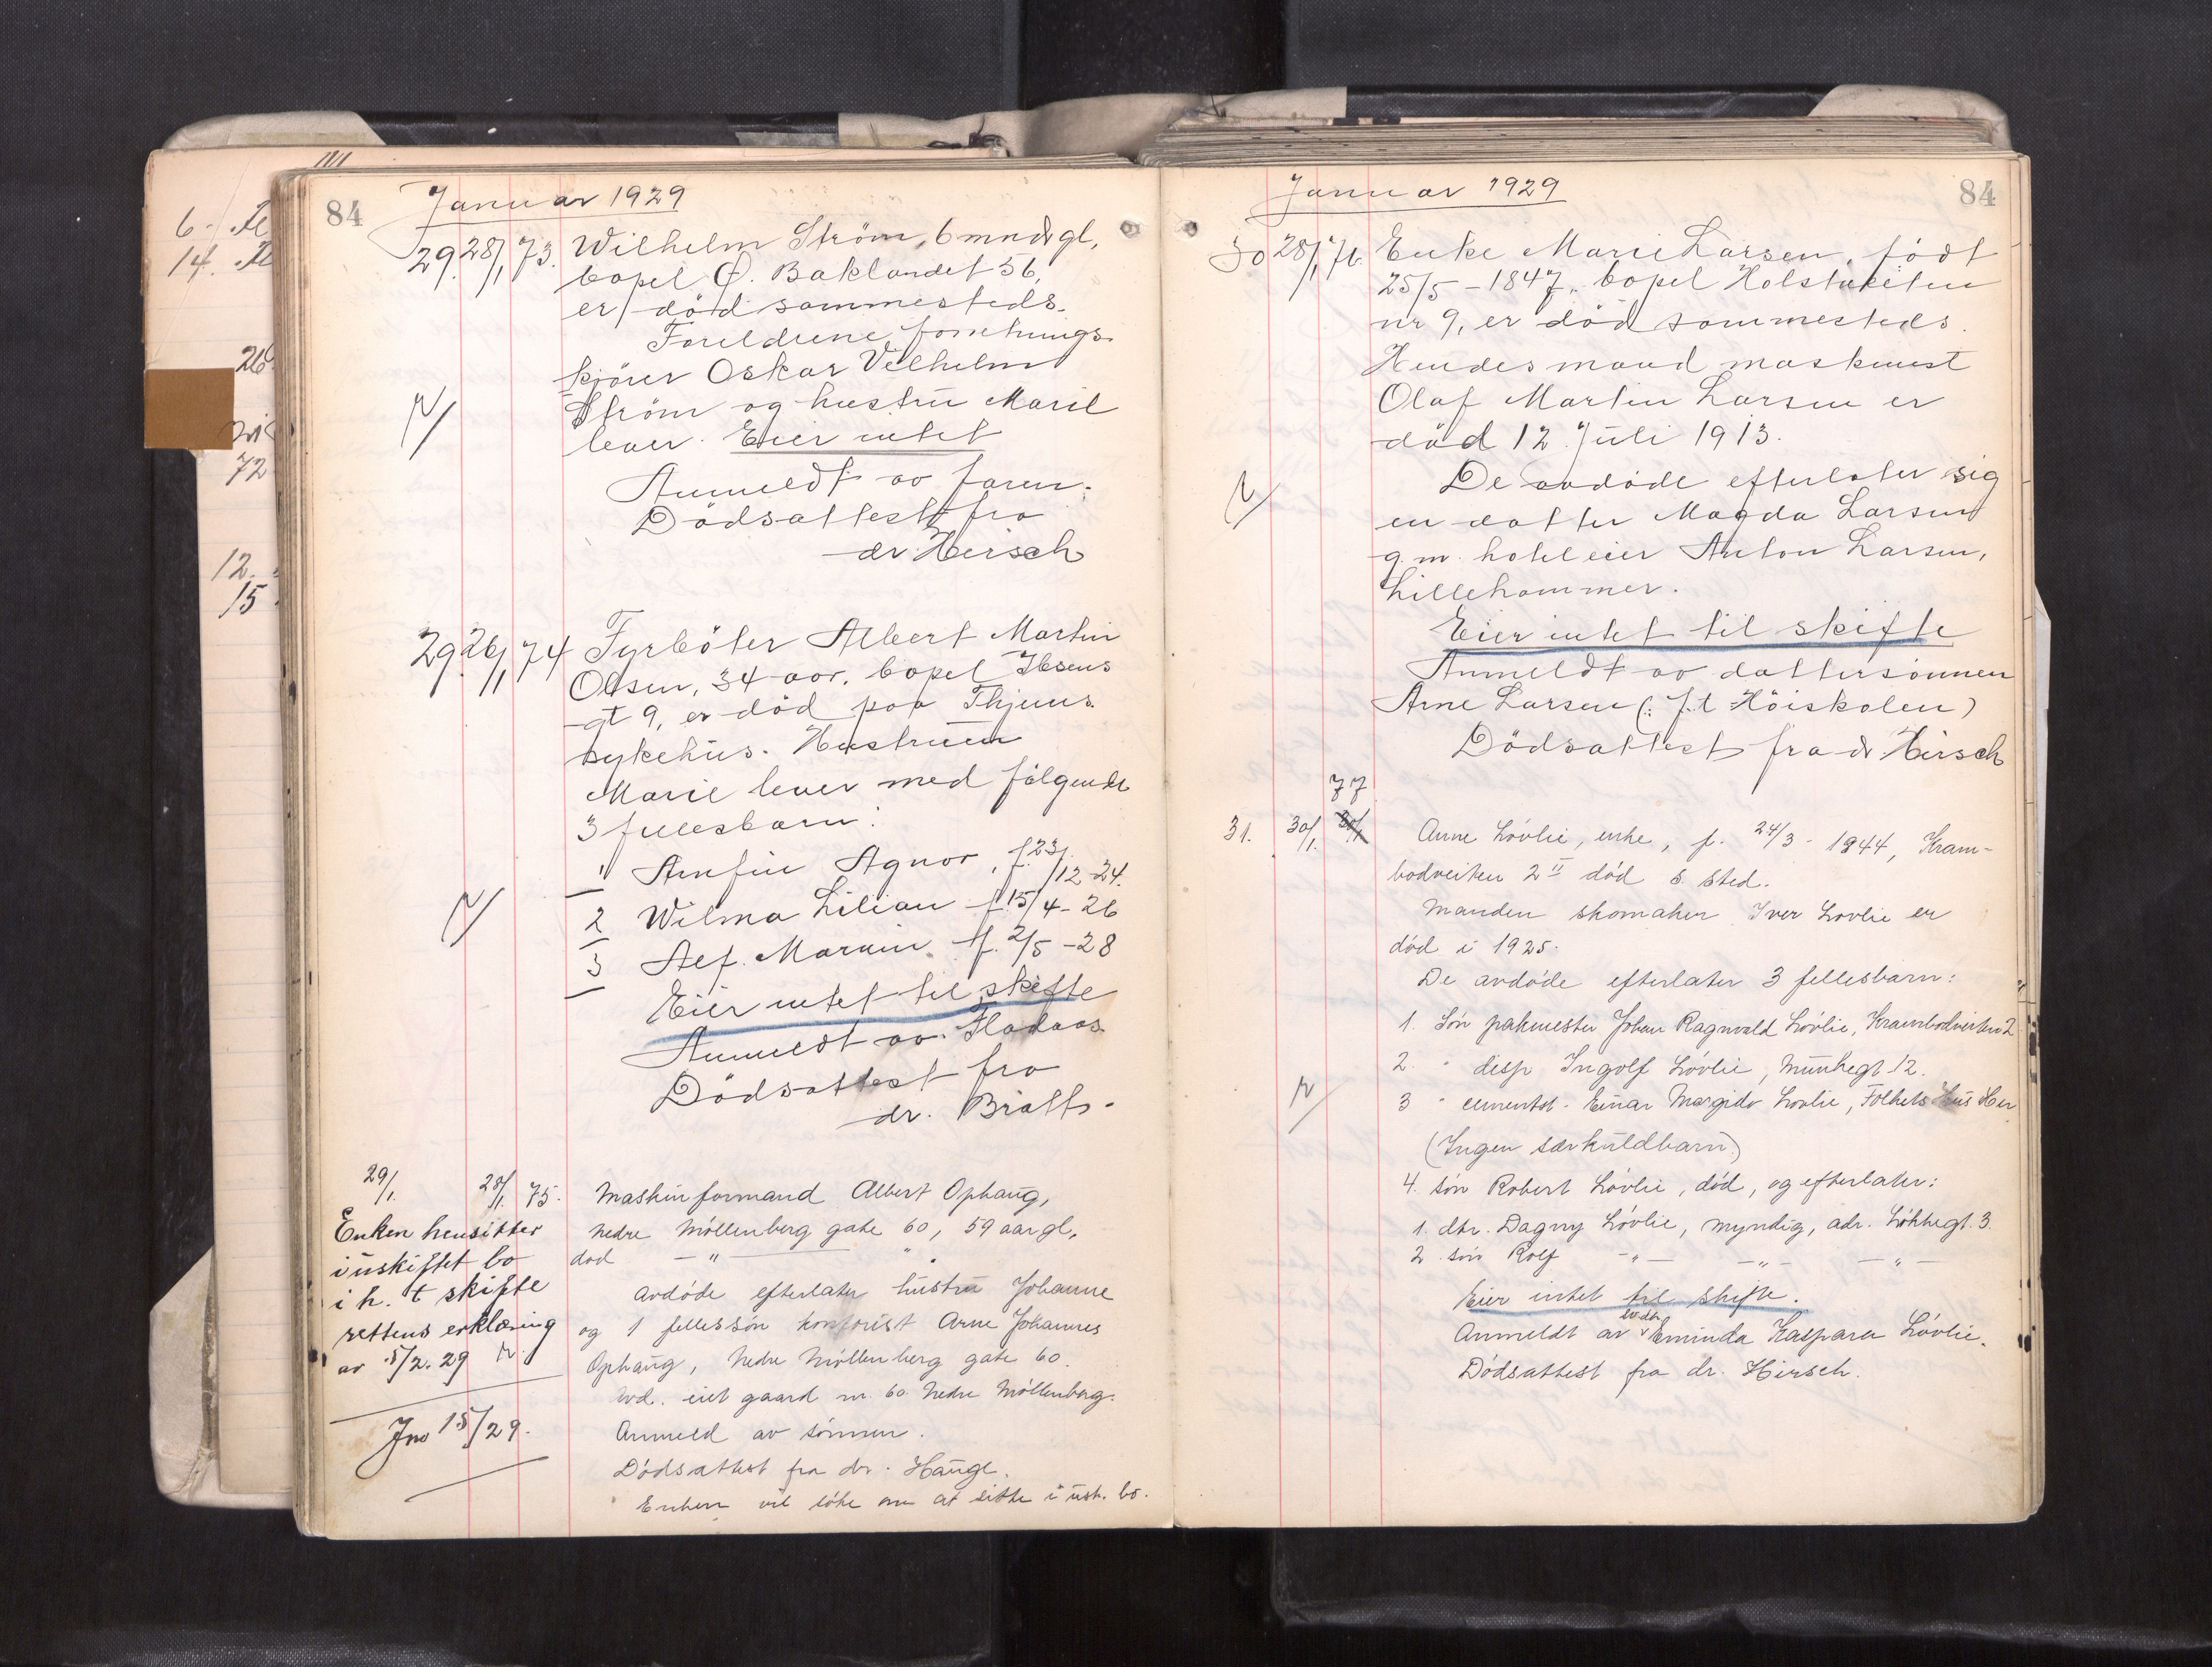 6
14.
26
72
12.
15
84
Januar 1929
29. 28/1 73. Wilhelm Ström, 6 mndr gl,
bopel Ø. Baklandet 56,
er död sammesteds.
Foreldrene, forretnings-
kjörer Oskar Vilhelm
Ström og hustru Marie
lever. Eier intet
Anmeldt av faren.
Dödsattest fra
dr. Hirsch
29. 26/1 74 Fyrböter Albert Martin
Olsen, 34 aar, bopel Ibsens
gt 9, er död paa Thjems
sykehus. Hustruen
Marie lever med fölgende
3 fellesbarn:
1 Arnfin Agnor, f. 23/12-24.
2 Wilma Lilian f. 15/4-26
3 Alf. Marvin f. 2/5-28
Eier intet til skifte
Anmeldt av Fladaas
Dödsattest fra
dr. Bratts.
29/1. 28/1. 75. Maskinformand Albert Ophaug,
Nedre Möllenberg gate 60, 59 aar gl,
död — " — "
Avdöde efterlater hustru Johanne
og 1 fellessön kontorist Arne Johannes
Ophaug, Nedre Möllenberg gate 60.
Avd. eiet gaard nr. 60 Nedre Möllenberg.
Anmeld av sönnen.
Dödsattest fra dr. Hauge.
Enken vil söke om at sitte i usk. bo.
Enken hensitter
i uskiftet bo
i h. t skifte
rettens erklæring
av 5/2.29
Jno 15/29.
84
Januar 1929
30 28/1 76. Enke Marie Larsen, födt
25/5-1847, bopel Holstveiten
nr 9, er död sammesteds.
Hendes mand maskinist
Olaf Martin Larsen er
död 12 Juli 1913.
De avdöde efterlater sig
en datter Magda Larsen
g. m. hoteleier Anton Larsen,
Lillehammer.
Eier intet til skifte
Anmeldt av dattersönnen
Arne Larsen (: f.t Höiskolen)
Dödsattest fra dr Hirsch
77
31. 30/1. Anne Lövlie, enke, f. 24/3 - 1844, Kram-
bodveiten 2 II död s. sted.
Manden skomaker Iver Lövlie er
död i 1925.
De avdöde efterlater 3 fellesbarn:
1. Sön pakmester Johan Ragnvald Lövlie, Krambodveiten 2
2. " disp Ingolf Lövlie, Munkegt 12.
3 " cementst. Einar Margido Lövlie, Folkets Hus Her
(Ingen særkuldbarn)
4. sön Robert Lövlie, död, og efterlater:
1. dtr. Dagny Lövlie, myndig, adr. Lökkegt. 3.
2. sön Rolf — " — — " — — " —
Eier intet til skifte.
Anmeldt av Eminda Kaspara Lövlie.
Dödsattest fra dr. Hirsch.